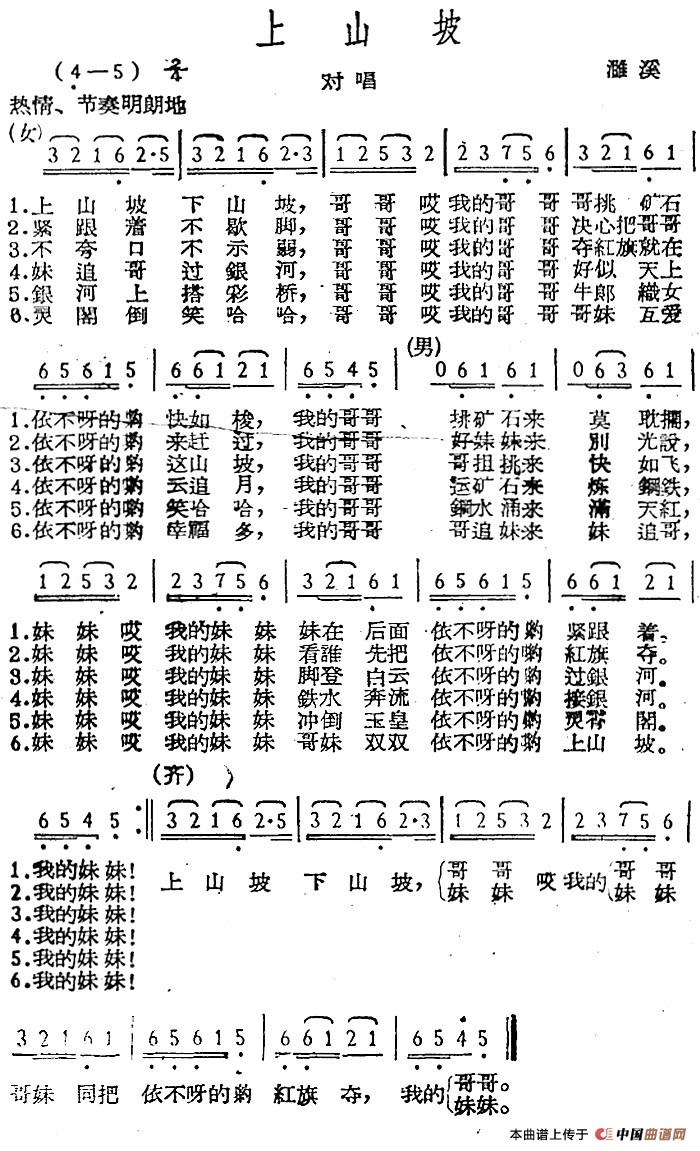 上山坡
(4—5) 2/4 对唱 濉溪
热情、节奏明朗地
(女) 3 2 1 6 2·5 | 3 2 1 6 2·3 | 1 2 5 3 2 | 2 3 7 5 6 | 3 2 1 6 1 |
1.上山坡下山坡，哥哥哎我的哥哥哥挑矿石
2.紧跟着不歇脚，哥哥哎我的哥哥决心把哥哥
3.不夸口不示弱，哥哥哎我的哥哥夺紅旗就在
4.妹追哥过銀河，哥哥哎我的哥哥好似天上
5.銀河上搭彩桥，哥哥哎我的哥哥牛郎織女
6.灵閣倒笑哈哈，哥哥哎我的哥哥哥妹互爱
6 5 6 1 5 | 6 6 1 2 1 | 6 5 4 5 | (男) 0 6 1 6 1 | 0 6 3 6 1 |
1.依不呀的哟快如梭，我的哥哥 挑矿石来莫耽擱，
2.依不呀的哟来赶过，我的哥哥 好妹妹来別光說，
3.依不呀的哟这山坡，我的哥哥 哥扭挑来快如飞，
4.依不呀的哟云追月，我的哥哥 运矿石来炼鋼鉄，
5.依不呀的哟笑哈哈，我的哥哥 鋼水涌来滿天紅，
6.依不呀的哟幸福多，我的哥哥 哥追妹来妹追哥，
1 2 5 3 2 | 2 3 7 5 6 | 3 2 1 6 1 | 6 5 6 1 5 | 6 6 1 2 1 |
1.妹妹哎我的妹妹妹在后面依不呀的哟紧跟着。
2.妹妹哎我的妹妹看誰先把依不呀的哟紅旗夺。
3.妹妹哎我的妹妹脚登白云依不呀的哟过銀河。
4.妹妹哎我的妹妹鉄水奔流依不呀的哟接銀河。
5.妹妹哎我的妹妹冲倒玉皇依不呀的哟灵霄閣。
6.妹妹哎我的妹妹哥妹双双依不呀的哟上山坡。
(齐)
6 5 4 5 :‖ 3 2 1 6 2·5 | 3 2 1 6 2·3 | 1 2 5 3 2 | 2 3 7 5 6 |
1.我的妹妹！
2.我的妹妹！
3.我的妹妹！
4.我的妹妹！
5.我的妹妹！
6.我的妹妹！
上山坡下山坡，{哥哥 哎我的{哥哥
妹妹 妹妹
3 2 1 6 1 | 6 5 6 1 5 | 6 6 1 2 1 | 6 5 4 5 ‖
哥妹同把依不呀的哟紅旗夺，我的{哥哥。
妹妹。
本曲谱上传于 中国曲谱网